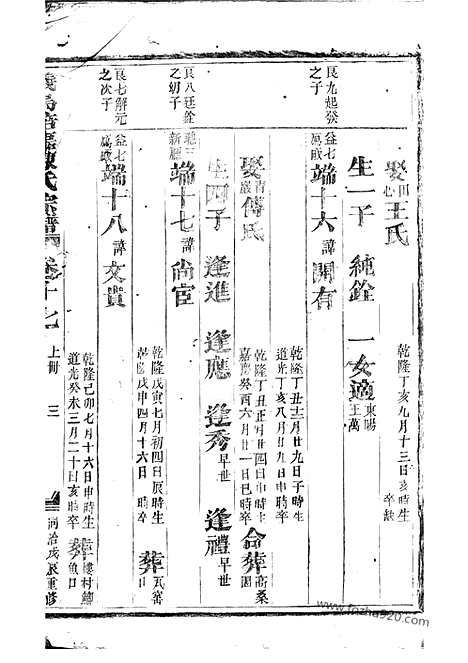 娶田心王氏 乾隆丁亥九月十三日亥時生 卒缺
生一子 純銓 一女適東陽王萬
良九起發之子
益七萬敗端十六諱開有 乾隆丁丑十二月廿九日子時生 道光丁亥八月廿九日申時卒
娶青巖傅氏 乾隆丁丑正月廿四日申時生 嘉慶癸酉六月廿一日巳時卒 合葬高桑園
生四子 逢進 逢應 逢秀早世 逢禮早世
良八廷銓之幼子
聽三新廳端十七諱尚宦 乾隆戊寅七月初四日辰時生 乾隆戊申四月十六日 時卒 葬瓦窑山
良七解元之次子
益七萬敗端十八諱文貴 乾隆己卯七月十六日申時生 道光癸未三月二十日亥時卒 葬樓村鯽魚口
陳氏宗譜 卷十七 上冊 三 同治戊辰重修
www.fozhu920.com